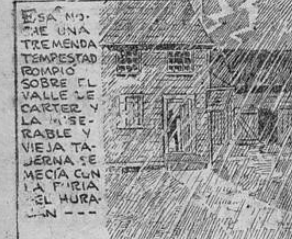 ESA NO-
CHE UNA
TREMENDA
TEMPESTAD
ROMPIÓ
SOBRE EL
VALLE DE
CARTER Y
LA MISE-
RABLE Y
VIEJA TA-
BERNA SE
MECÍA CON
LA FURIA
DEL HURA-
CÁN ---